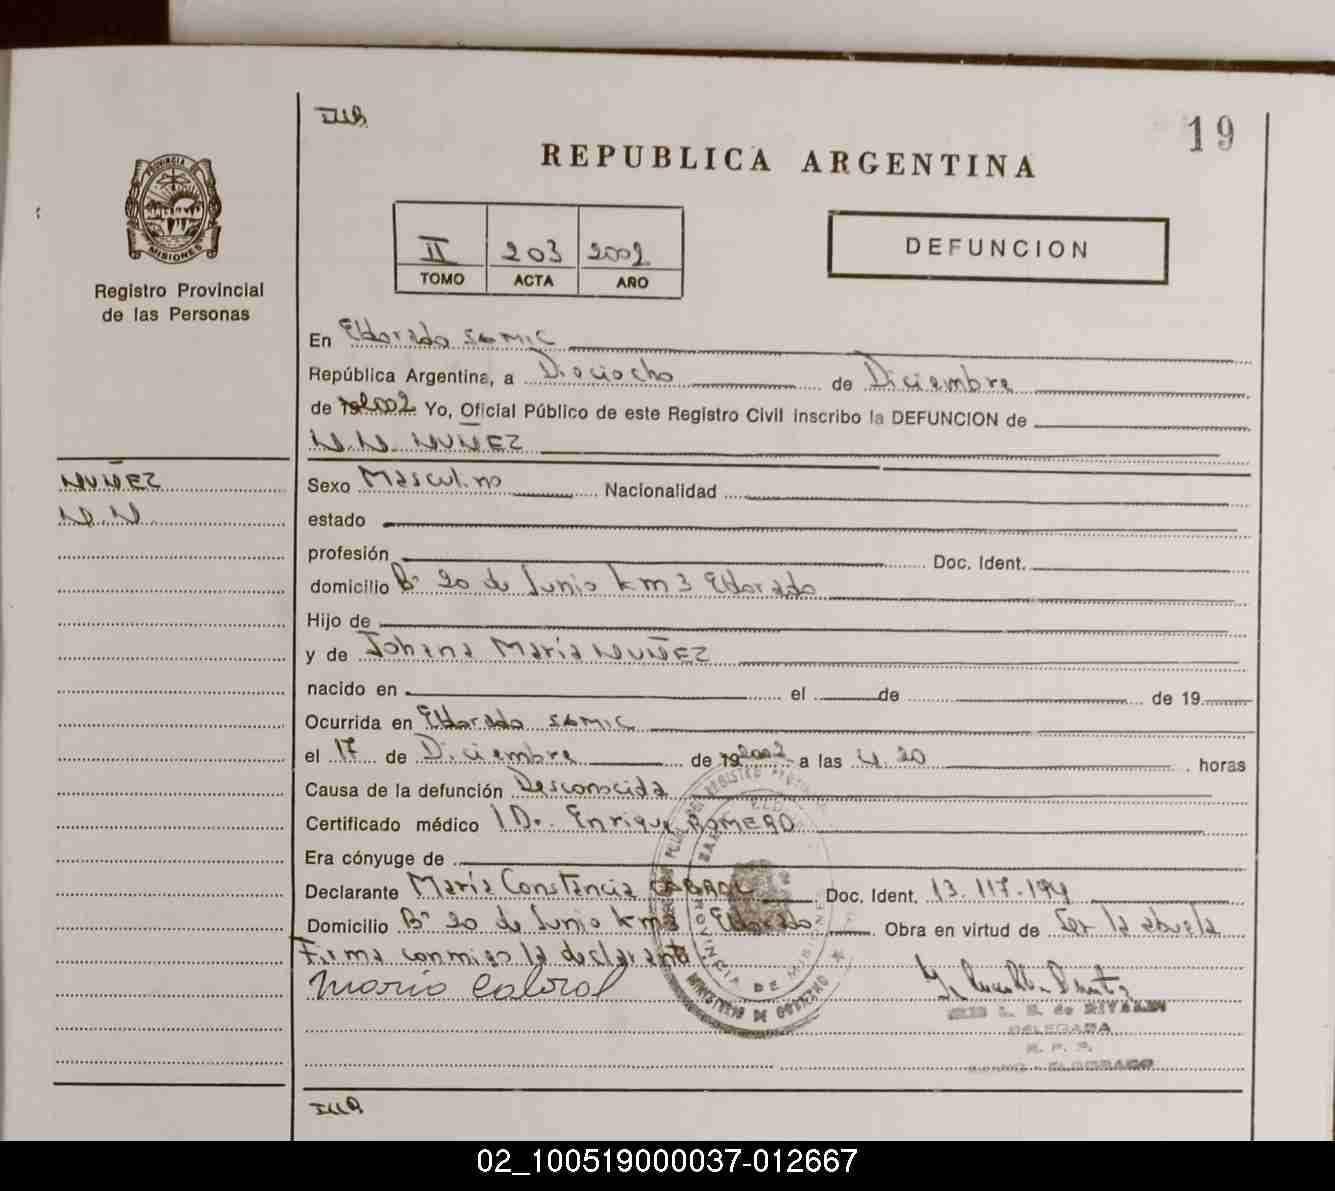 19
REPUBLICA ARGENTINA
PROVINCIA DE
MISIONES
Registro Provincial
de las Personas
II 203 2002
TOMO ACTA AÑO
DEFUNCION
En Eldorado SAMIC
República Argentina, a Dieciocho de Diciembre
de 2002 Yo, Oficial Público de este Registro Civil inscribo la DEFUNCION de
N.N. NUÑEZ
NUÑEZ
N.N.
Sexo Masculino Nacionalidad
estado
profesión Doc. Ident.
domicilio Bº 20 de Junio km 3 Eldorado
Hijo de
y de Johana María NUÑEZ
nacido en el de de 19
Ocurrida en Eldorado SAMIC
el 17 de Diciembre de 2002 a las 4.20 horas
Causa de la defunción Desconocida
Certificado médico Dr. Enrique ROMERO
Era cónyuge de
Declarante María Constancia CABRAL Doc. Ident. 13.117.194
Domicilio Bº 20 de Junio km 3 Eldorado Obra en virtud de Ser la abuela
Firma conmigo la declarante
María Cabral
L. S. de
DELEGADA
R. P. P.
ELDORADO
PROVINCIA DE MISIONES
MINISTERIO DE GOBIERNO
02_100519000037-012667